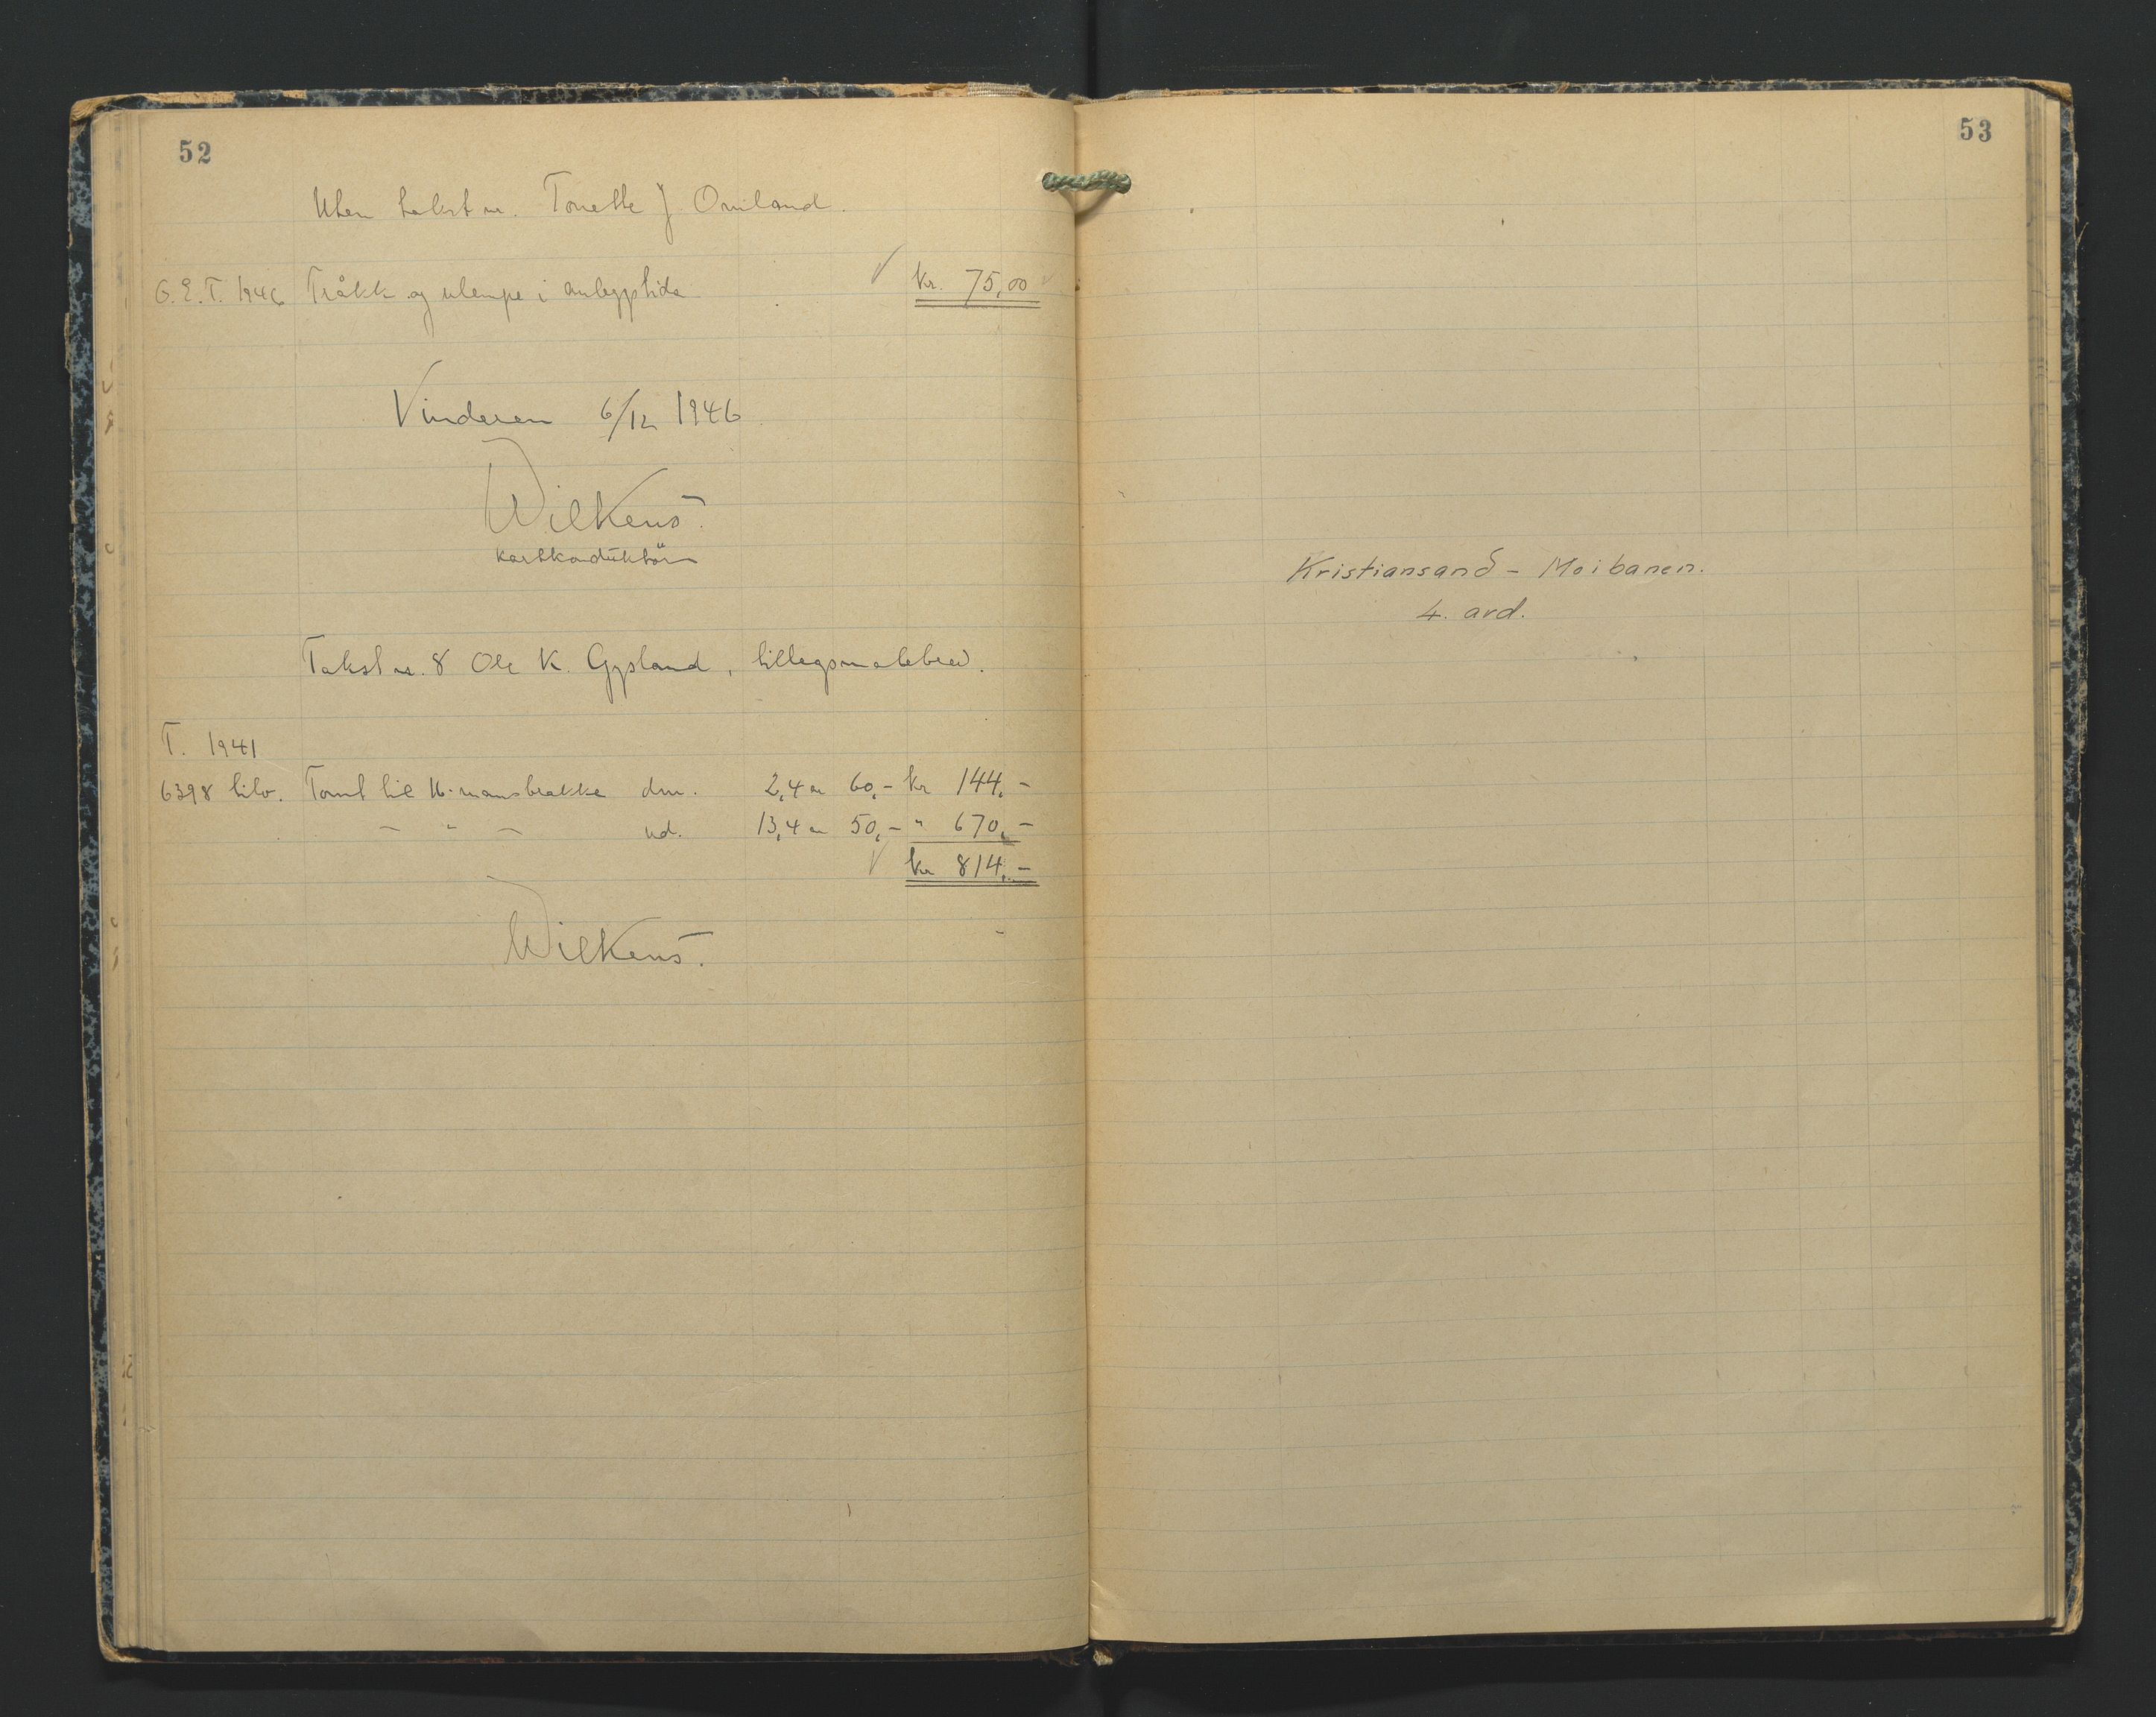 52
Uten takst nr. Tonette J Omland.
O.E.T. 1946 Tråkk og ulempe i anleggstida kr. 75,00
Vinderen 6/12 1946
Wilkens.
kartkonduktör
Takst nr. 8 Ole K. Gysland, tilleggsmålebrev.
T. 1941
6398 tilv. Tomt til 16-mansbrakke dm. 2,4 ar 60,- kr 144,-
- " - ud. 13,4 ar 50,- " 670,-
kr 814,-
Wilkens.
53
Kristiansand - Moibanen.
4. avd.